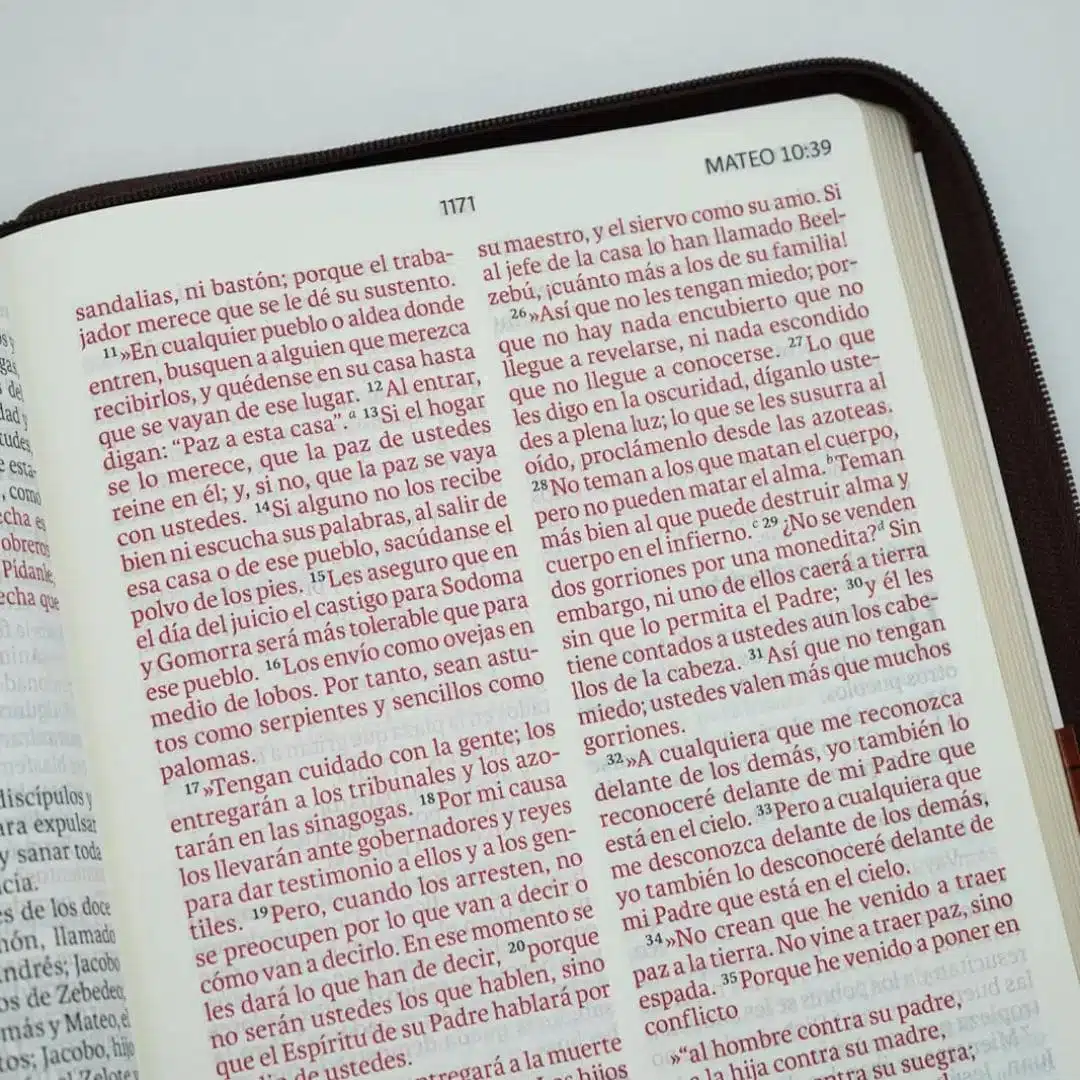 1171
MATEO 10:39
gas,
s del
dad y
tudes,
e esta-
, como
echa es
obreros
Pídanle,
echa que
discípulos y
ara expulsar
y sanar toda
cia.
es de los doce
món, llamado
ndrés; Jacobo
os de Zebedeo,
más y Mateo, el
tos; Jacobo, hijo
el Zelote
sandalias, ni bastón; porque el traba-
jador merece que se le dé su sustento.
11 »En cualquier pueblo o aldea donde
entren, busquen a alguien que merezca
recibirlos, y quédense en su casa hasta
que se vayan de ese lugar. 12 Al entrar,
digan: “Paz a esta casa”. a 13 Si el hogar
se lo merece, que la paz de ustedes
reine en él; y, si no, que la paz se vaya
con ustedes. 14 Si alguno no los recibe
bien ni escucha sus palabras, al salir de
esa casa o de ese pueblo, sacúdanse el
polvo de los pies. 15 Les aseguro que en
el día del juicio el castigo para Sodoma
y Gomorra será más tolerable que para
ese pueblo. 16 Los envío como ovejas en
medio de lobos. Por tanto, sean astu-
tos como serpientes y sencillos como
palomas.
17 »Tengan cuidado con la gente; los
entregarán a los tribunales y los azo-
tarán en las sinagogas. 18 Por mi causa
los llevarán ante gobernadores y reyes
para dar testimonio a ellos y a los gen-
tiles. 19 Pero, cuando los arresten, no
se preocupen por lo que van a decir o
cómo van a decirlo. En ese momento se
les dará lo que han de decir, 20 porque
no serán ustedes los que hablen, sino
que el Espíritu de su Padre hablará por
de ustedes.
entregará a la muerte
hijos
su maestro, y el siervo como su amo. Si
al jefe de la casa lo han llamado Beel-
zebú, ¡cuánto más a los de su familia!
26 »Así que no les tengan miedo; por-
que no hay nada encubierto que no
llegue a revelarse, ni nada escondido
que no llegue a conocerse. 27 Lo que
les digo en la oscuridad, díganlo uste-
des a plena luz; lo que se les susurra al
oído, proclámenlo desde las azoteas.
28 No teman a los que matan el cuerpo,
pero no pueden matar el alma. b Teman
más bien al que puede destruir alma y
cuerpo en el infierno. c 29 ¿No se venden
dos gorriones por una monedita? d Sin
embargo, ni uno de ellos caerá a tierra
sin que lo permita el Padre; 30 y él les
tiene contados a ustedes aun los cabe-
llos de la cabeza. 31 Así que no tengan
miedo; ustedes valen más que muchos
gorriones.
32 »A cualquiera que me reconozca
delante de los demás, yo también lo
reconoceré delante de mi Padre que
está en el cielo. 33 Pero a cualquiera que
me desconozca delante de los demás,
yo también lo desconoceré delante de
mi Padre que está en el cielo.
34 »No crean que he venido a traer
paz a la tierra. No vine a traer paz, sino
espada. 35 Porque he venido a poner en
conflicto
»“al hombre contra su padre,
a la hija contra su madre,
contra su suegra;